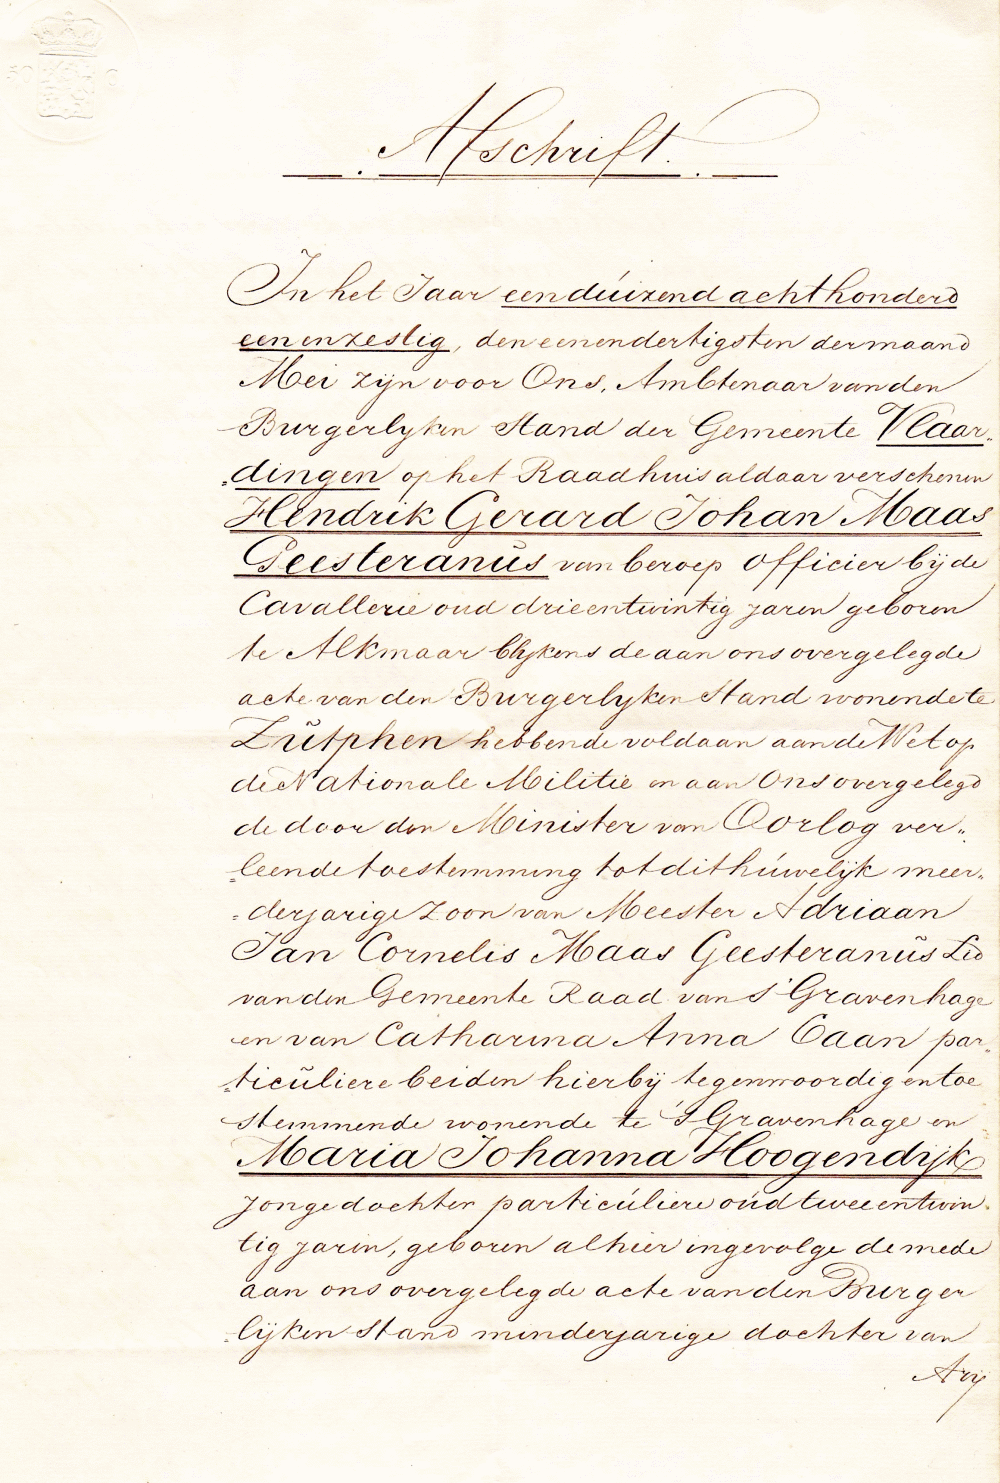 Afschrift.
In het Jaar eenduizend achthonderd
een en zestig, den eenendertigsten der maand
Mei zijn voor Ons, Ambtenaar van den
Burgerlyken Stand der Gemeente Vlaar„
„dingen op het Raadhuis aldaar verschenen
Hendrik Gerard Johan Maas
Geesteranus van beroep officier bij de
Cavallerie oud drieentwintig jaren geboren
te Alkmaar blykens de aan ons overgelegde
acte van den Burgerlyken Stand wonende te
Zutphen hebbende voldaan aan de Wet op
de Nationale Militie en aan Ons overgelegd
de door den Minister van Oorlog ver„
„leende toestemming tot dit huwelijk meer„
„derjarige zoon van Meester Adriaan
Jan Cornelis Maas Geesteranus Lid
van den Gemeente Raad van S'Gravenhage
en van Catharina Anna Caan par„
„ticuliere beiden hierbij tegenwoordig en toe
stemmende wonende te 'S Gravenhage en
Maria Johanna Hoogendijk
jongedochter particuliere oud tweeentwin„
tig jaren, geboren alhier ingevolge de mede
aan ons overgelegde acte van den Burger
lijken Stand minderjarige dochter van
Arij